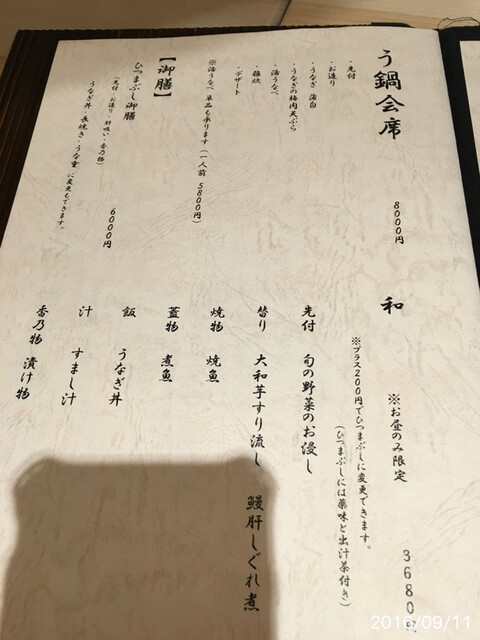 う鍋会席 8000円
・先付
・お造り
・うなぎ 蒲白
・うなぎの梅肉天ぷら
・湯うなべ
・雑炊
・デザート
※湯うなべ 単品も承ります(一人前 5800円)
【御膳】
ひつまぶし御膳 6000円
(先付・お造り・肝吸い・香乃物)
うなぎ丼・長焼き・うな重 に変更もできます。
和 ※お昼のみ限定 3680円
※プラス200円でひつまぶしに変更できます。
(ひつまぶしには薬味と出汁茶付き)
先付 旬の野菜のお浸し
替り 大和芋すり流し 鰻肝しぐれ煮
焼物 焼魚
蓋物 煮魚
飯 うなぎ丼
汁 すまし汁
香乃物 漬け物
2016/09/11